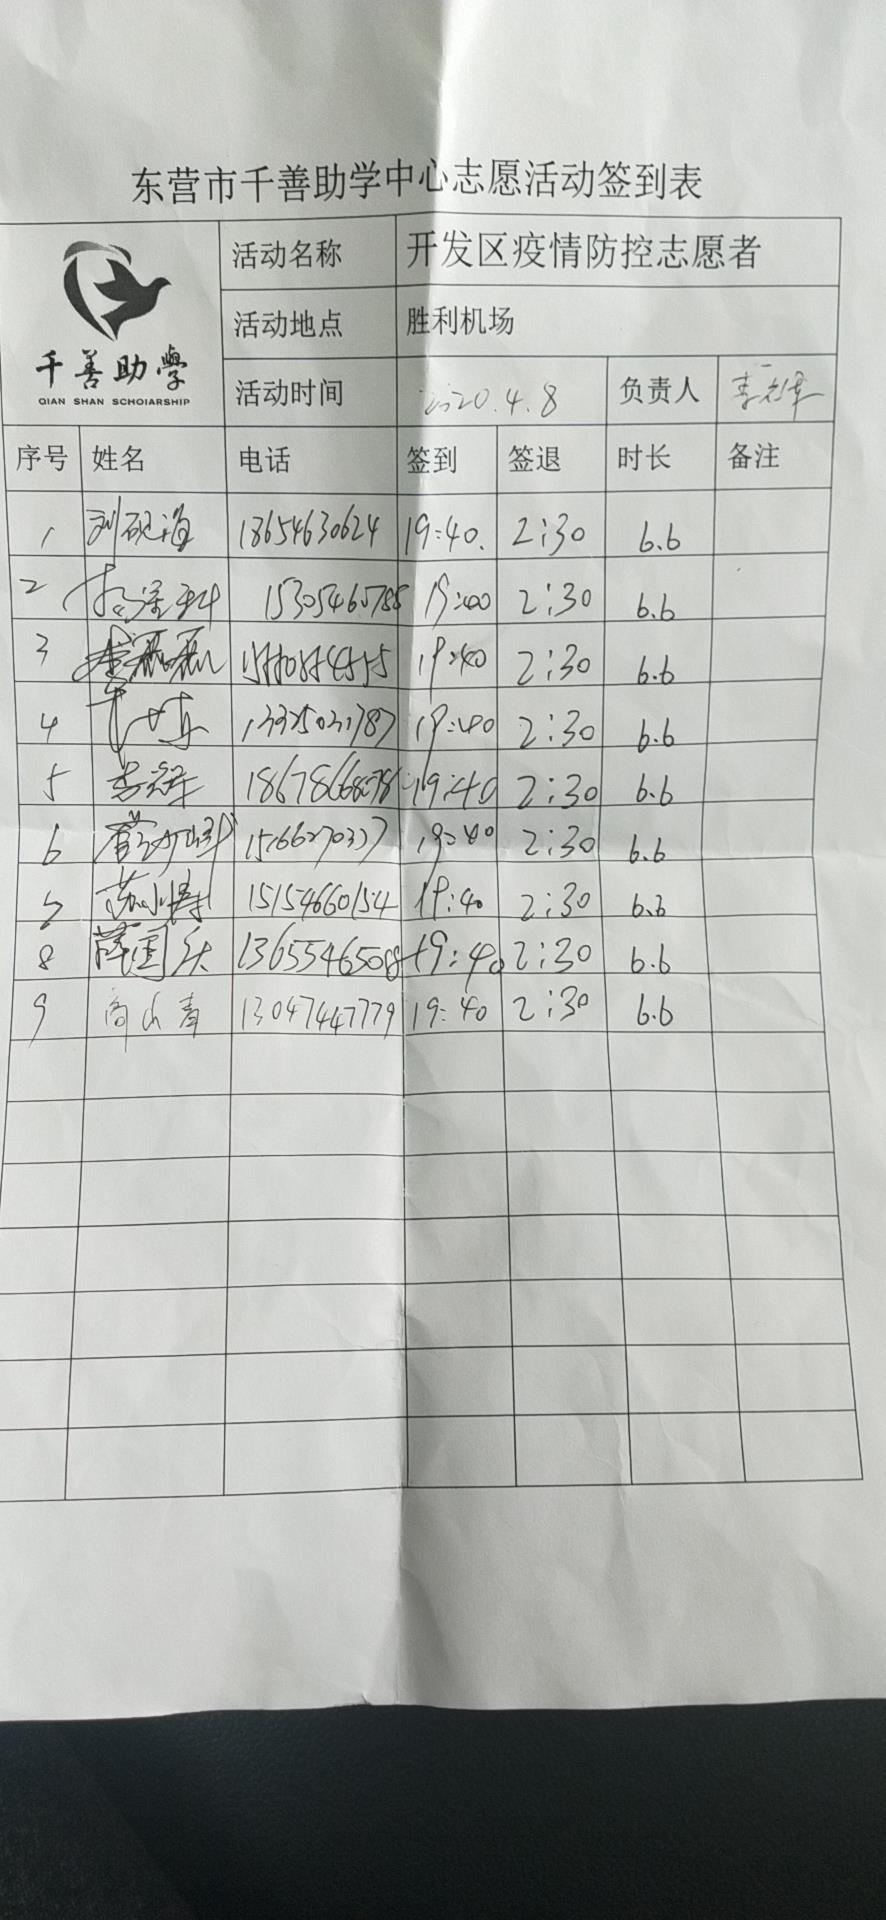 东营市千善助学中心志愿活动签到表
千善助學
QIAN SHAN SCHOIARSHIP
活动名称 开发区疫情防控志愿者
活动地点 胜利机场
活动时间 2020.4.8 负责人
序号 姓名 电话 签到 签退 时长 备注
1 刘砚海 18654630624 19:40. 2:30 6.6
2 15305460788 19:40 2:30 6.6
3 19:40 2:30 6.6
4 13325031787 19:40 2:30 6.6
5 19:40 2:30 6.6
6 19:40 2:30 6.6
7 苏小涛 15154660154 19:40 2:30 6.6
8 薛国庆 19:40 2:30 6.6
9 高山青 13047447779 19:40 2:30 6.6